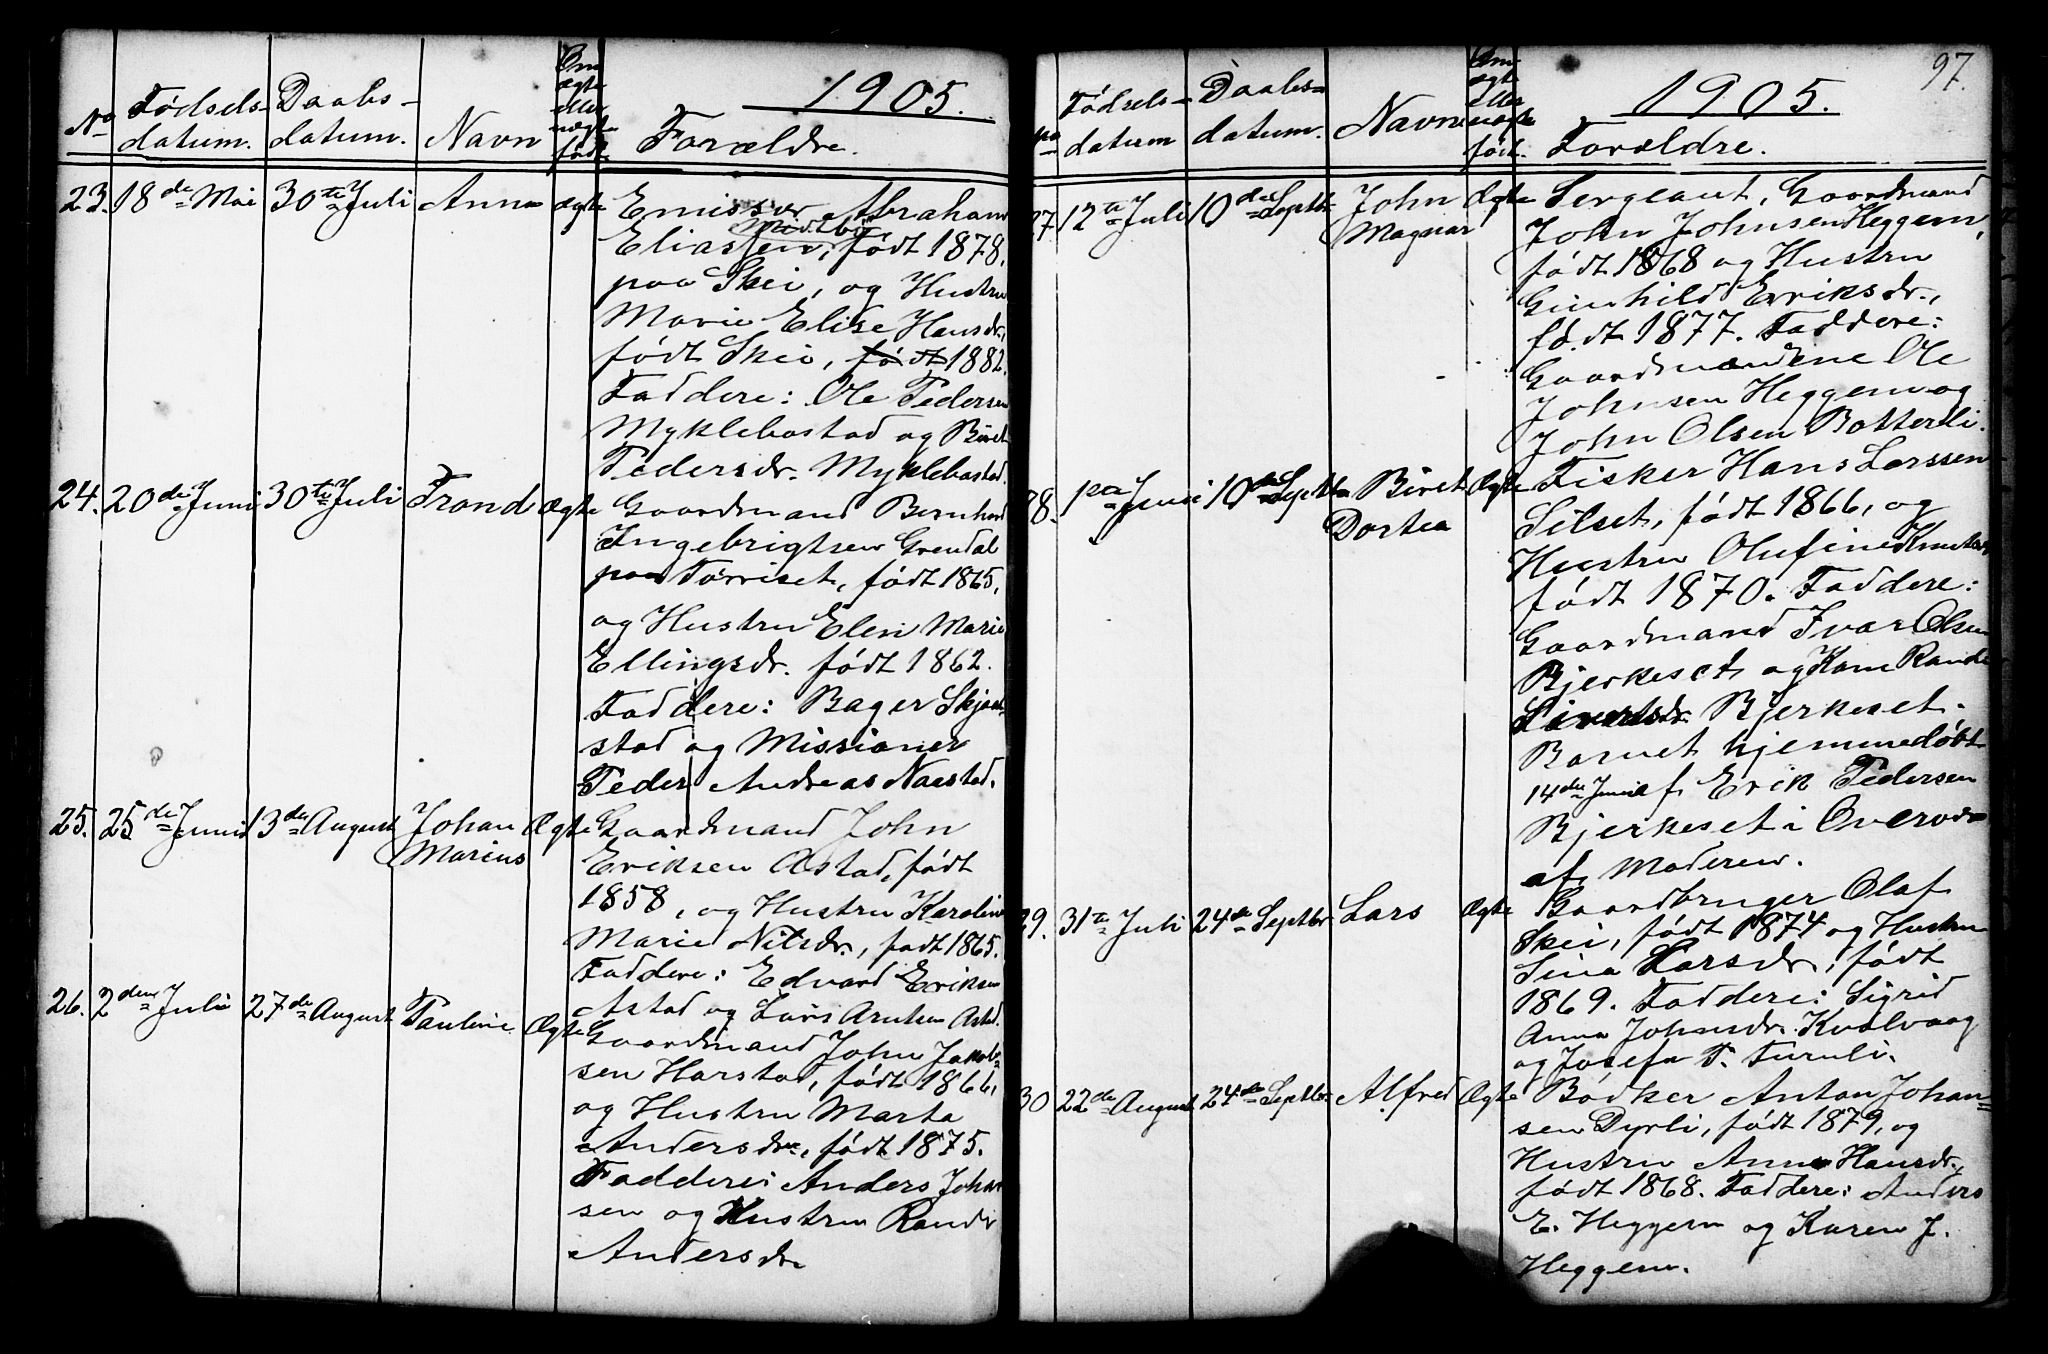 1905.
No
Fødsels-
datum.
Daabs-
datum.
Navn
Om
ægte
eller
uægte
født.
Forældre.
23. 18de Mai 30te Juli Anna ægte Emissær Abraham
Midtbø
Eliassen, født 1878.
paa Skei, og Hustru
Marie Elise Hansdr.,
født Skei, født 1882.
Faddere: Ole Pedersen
Myklebostad og Beret
Pedersdr. Myklebostad.
24. 20de Juni 30te Juli Trond Ægte Gaardmand Bernhard
Ingebrigtsen Grendal
paa Tørriset, født 1865,
og Hustru Elen Marie
Ellingsdr. født 1862.
Faddere: Bager
stad og Missionær
Peder Andreas Naastad.
25. 25de Juni 13de August Johan Ægte Gaardmand John
Marius
Eriksen Astad, født
1858, og Hustru Karoline
Marie Nilsdr., født 1865.
Faddere: Edvard Eriksen
Astad og Lars Arntsen Astad.
26. 2den Juli 27de August Pauline Ægte Gaardmand John Jakob-
sen Harstad, født 1866,
og Hustru Marta
Andersdr., født 1875.
Faddere: Anders Johan
sen og Hustru Randi
Andersdr.
97.
1905.
No
Fødsels-
datum
Daabs-
datum.
Navn
Om
ægte
eller
uægte
født.
Forældre.
27. 12te Juli 10de Septbr John Ægte Sergeant, Gaardmand
Magnar
John Johnsen Heggem,
født 1868 og Hustru
Gunhild Eriksdr.,
født 1877. Faddere:
Gaardmændene Ole
Johnsen Heggem og
John Olsen Botterli.
28. 1ste Juni 10de Septbr Beret Ægte Fisker Hans Larssen
Dortea
Silset, født 1866, og
Hustru Olufine Knutsdr
født 1870. Faddere:
Gaardmand Ivar Olsen
Bjerkeset og Kone Rande
Sivertsdr. Bjerkeset.
Barnet hjemmedøbt
14de Juni af Erik Pedersen
Bjerkeset i Overvær
af Moderen.
29. 31te Juli 24de Septbr Lars Ægte Gaardbruger Olaf
Skei, født 1874 og Hustru
Sina Larsdr., født
1869. Faddere: Sigrid
Anna Johnsdr. Kvalvaag
og Josefa P. Furuli.
30 22de August 24de Septbr Alfred Ægte Bødker Anton Johan-
sen Dyrli, født 1879, og
Hustru Anna Hansdr.,
født 1868. Faddere: Anders
E. Heggem og Karen J.
Heggem.